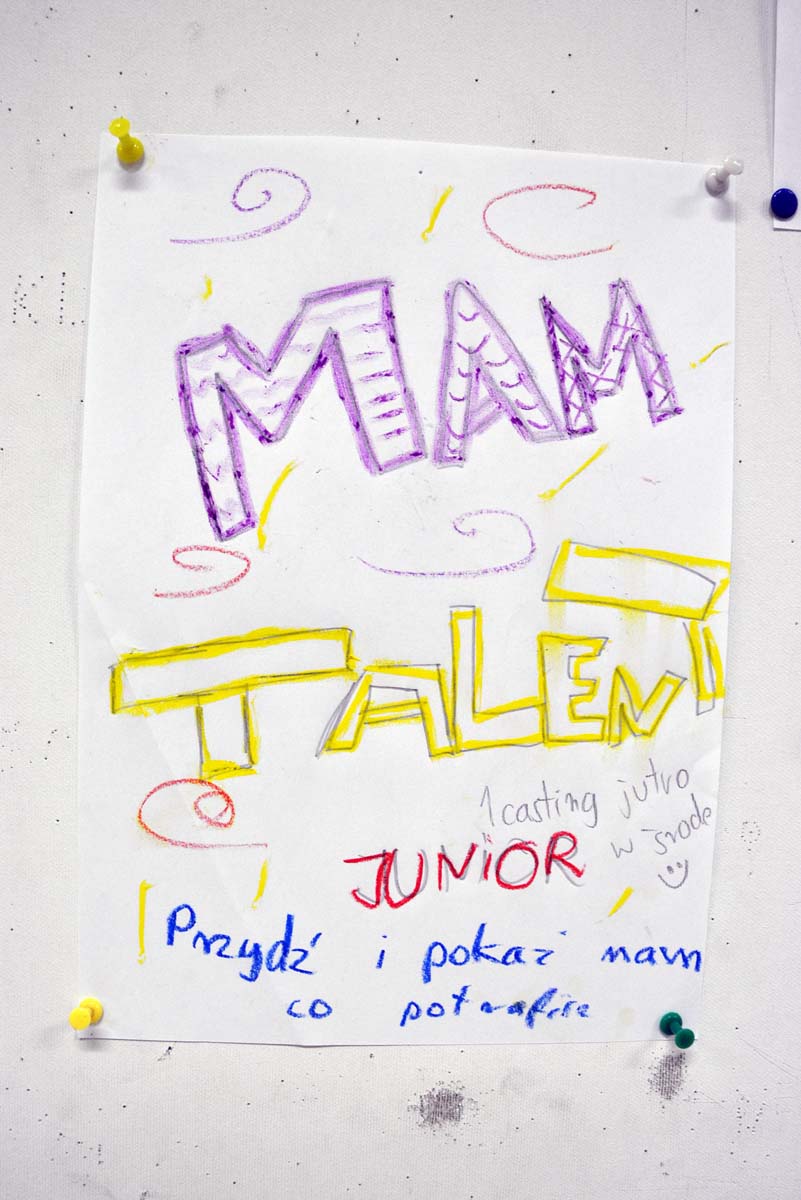 MAM
TALENT
1 casting jutro
w środe
JUNIOR
Przydź i pokaż nam
co potrafisz
KL